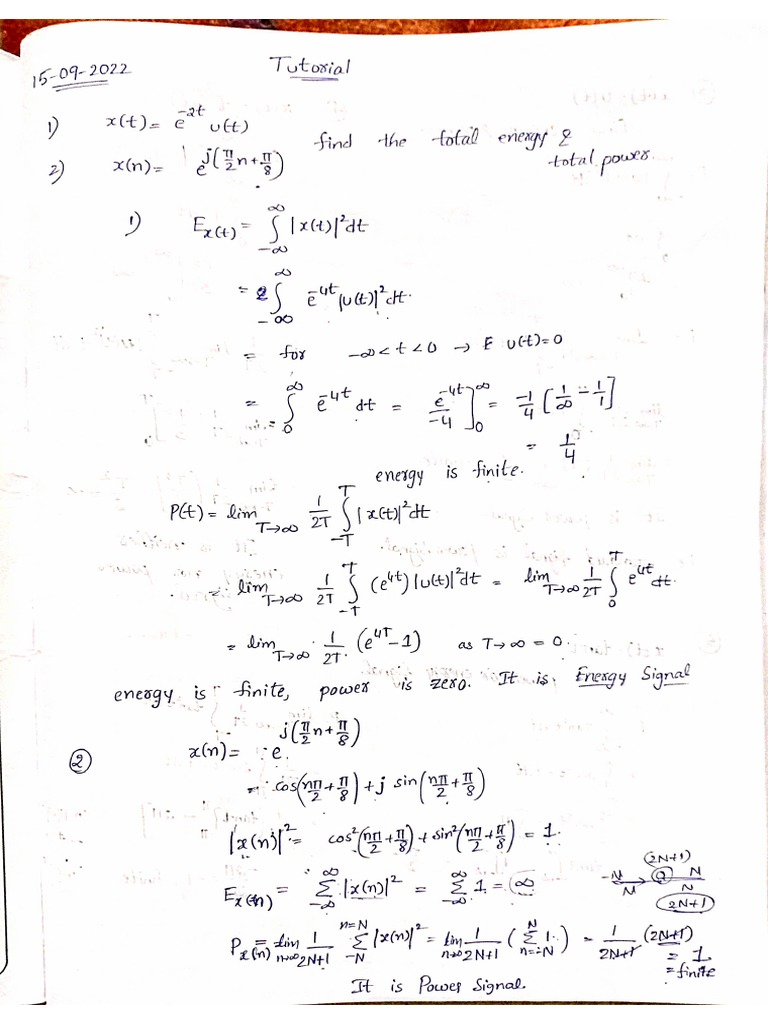 15-09-2022 Tutorial
1) x(t) = e^{-2t} u(t)
find the total energy & total power.
2) x(n) = e^{j(π/2 n + π/8)}
1) E_{x(t)} = ∫_{-∞}^{∞} |x(t)|² dt
= ∫_{-∞}^{∞} e^{-4t} |u(t)|² dt.
= for -∞ < t < 0 → E u(t) = 0
= ∫_{0}^{∞} e^{-4t} dt = e^{-4t}/-4 ]_{0}^{∞} = -1/4 [1/∞ - 1/1]
= 1/4
energy is finite.
P(t) = lim_{T→∞} 1/2T ∫_{-T}^{T} |x(t)|² dt
= lim_{T→∞} 1/2T ∫_{-T}^{T} (e^{4t}) |u(t)|² dt = lim_{T→∞} 1/2T ∫_{0}^{T} e^{4t} dt.
= lim_{T→∞} 1/2T. (e^{4T} - 1) as T→∞ = 0.
energy is finite, power is zero. It is Energy Signal
② x(n) = e^{j(π/2 n + π/8)}
= cos(nπ/2 + π/8) + j sin(nπ/2 + π/8)
|x(n)|² = cos²(nπ/2 + π/8) + sin²(nπ/2 + π/8) = 1.
E_{x(n)} = Σ_{-∞}^{∞} |x(n)|² = Σ_{-∞}^{∞} 1 = ∞
(2N+1)
-N N
N N
(2N+1)
P_{x(n)} = lim_{n→∞} 1/2N+1 Σ_{-N}^{n=N} |x(n)|² = lim_{n→∞} 1/2N+1 (Σ_{n=-N}^{N} 1.) = 1/2N+1 (2N+1)
= 1
= finite
It is Power Signal.